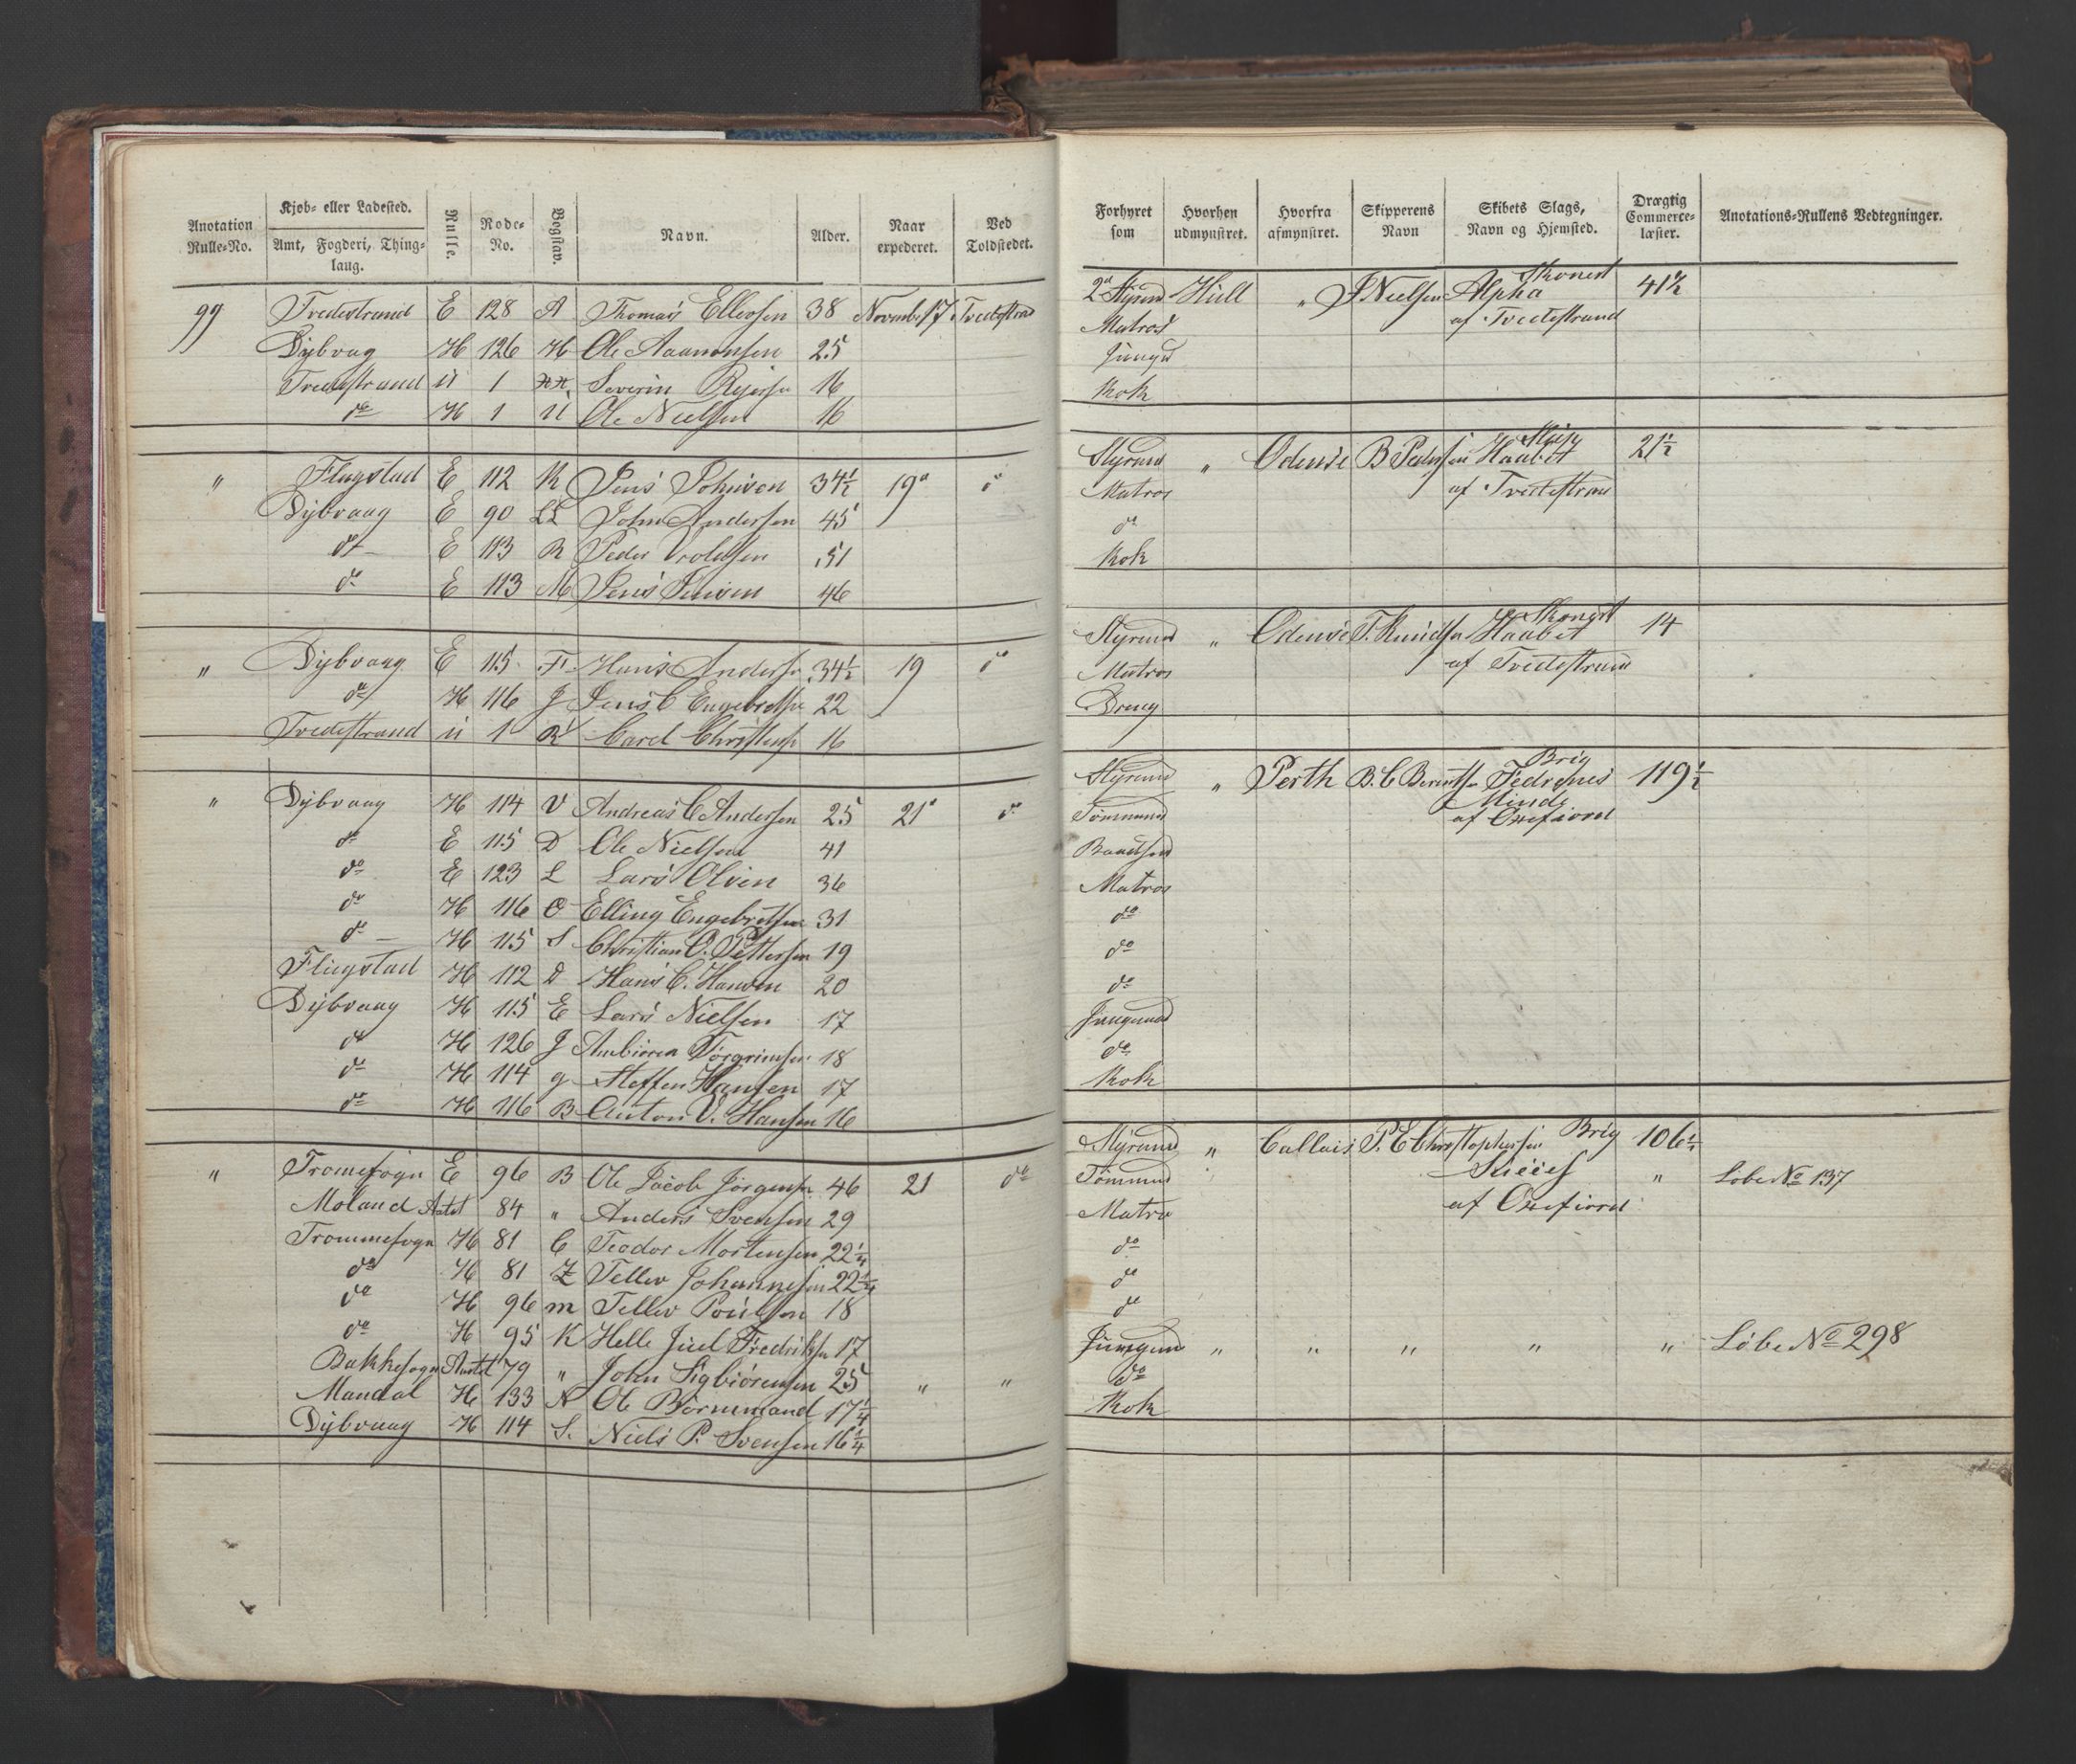 Anotation Rulle-No.
Kjøb- eller Ladested.
Amt, Fogderi, Thinglaug.
Rulle.
Rode-No.
Bogstav.
Navn.
Alder.
Naar expederet.
Ved Toldstedet.
99 Tvedestrand E 128 A Thomas Ellevsen 38 Novembr 17. Tvedestrand
Dybvag H 126 H Ole Aaanonsen 25
Tvedestrand ü 1 Severin 16
do H 1 Ole Nielsen 16
" Flagstad E 112 K Jens Johnsen 34½ 19 do
Dybvaag E 90 LL John Andersen 45
do E 113 R Peder 51
do E 113 M Jens Jensen 46
" Dybvaag E 115 F Hans Andersen 34½ 19 do
do H 116 J Jens C Engebretsen 22
Tvedestrand ü 1 R Carel Christensen 16
" Dybvaag H 114 V Andreas C Andersen 25 21 do
do E 115 D Ole Nielsen 41
do E 123 L Lars Olsen 36
do H 116 O Elling Engebretsen 31
do H 115 S Christian O. Pettersen 19
Flagstad H 112 D Hans C. Hansen 20
Dybvaag H 115 E Lars Nielsen 17
do H 126 J Torgrimsen 18
do H 114 g Steffen Hansen 17
do H 116 B Anton V. Hansen 16
" Tromøsogn E 96 B Ole Jacob Jörgensen 46 21 do
Moland Antel 84 " Anders Svensen 29
Trommesogn H 81 C Teodor Mortensen 22¼
do H 81 Z Tellev Johannesen 22¼
do H 96 m Tellev Poulsen 18
do H 95 K Helle Juel Fredriksen 17
Bakkesogn Antel 79 " John Sigbiörensen 25 " "
Mandal H 133 A Ole Börnmand 17¼
Dybvaag H 114 S. Niels P. Svensen 16¼
Forhyret som
Hvorhen udmynstret.
Hvorfra afmynstret.
Skipperens Navn
Skibets Slags, Navn og Hjemsted.
Drægtig Commerce-læster.
Anotations-Rullens Vedtegninger.
2den Styrmd Hull " J Nielsen Skonert Alpha 41½
Matros af Tvedestrand
Jungmd
Kok
Styrmd " Odense B Pedersen Haabet 21½
Matros af Tvedestrand
do
Kok
Styrmd " Odense T. Knudsen Skonert Haabet 14
Matros af Tvedestrand
Dreng
Styrmd " Perth B. C Berentsen Brig Fedrenes 119½
Minde
Tömmmd af Oxefiord
Baadsmd
Matros
do
do
do
Jungmand
do
Kok
Styrmd " Callais P. E Christophersen Brig 106½
Tömmmd Sucées " Löbe No 137
Matro af Oxefiord
do
do
do
Jungmd " " " " " Löbe No 298
do
Kok